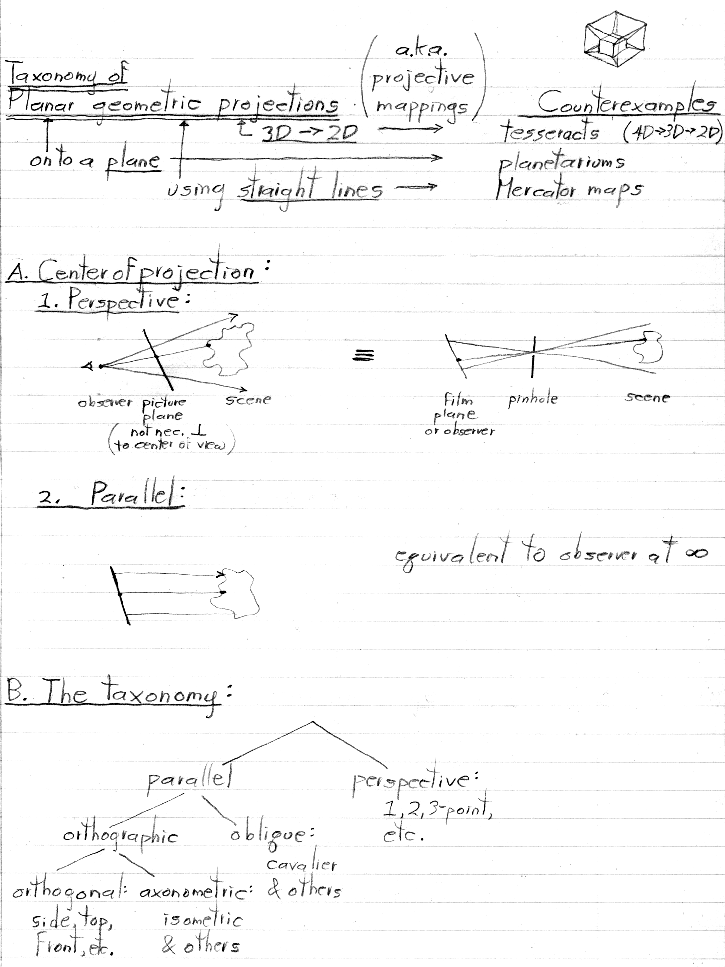 Taxonomy of
Planar geometric projections
(a.k.a.
projective
mappings)
Counterexamples
3D → 2D → tesseracts (4D→3D→2D)
onto a plane → planetariums
using straight lines → Mercator maps
A. Center of projection:
1. Perspective:
≡
observer picture plane scene
(not nec. ⊥
to center of view)
film
plane
or observer
pinhole
scene
2. Parallel:
equivalent to observer at ∞
B. The taxonomy:
parallel perspective:
1, 2, 3-point,
etc.
orthographic oblique:
cavalier
& others
orthogonal: axonometric:
side, top, isometric
front, etc. & others